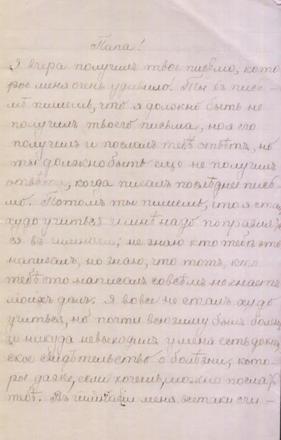 Папа!
Я вчера получилъ твое письмо, кото
рое меня очень удивило! Ты въ пись
мѣ пишешь, что я должно быть не
получилъ твоего письма, но я его
получилъ и послалъ тебѣ отвѣтъ, но
ты должно быть еще не получилъ
отвѣта, когда писалъ послѣднее пись
мо. Потомъ ты пишешь, что я сталъ
худо учиться и мнѣ надо поправить
ся въ гимназіи; не знаю кто тебѣ это
написалъ, но знаю, что тотъ, кто
тебѣ это написалъ совсѣмъ не знаетъ
моихъ дѣлъ. Я вовсе не сталъ худо
учиться, но почти всю зиму былъ болѣнъ
и никуда не выходилъ у меня есть доктор
ское свидѣтельство о болѣзни, кото
рое даже, если хочешь, можно послать
тебѣ. Въ гимназіи меня всетаки счи-